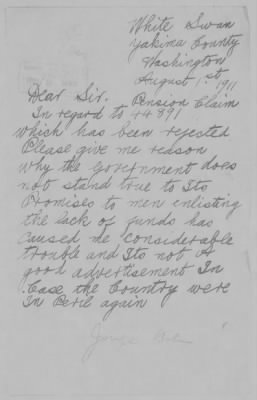 White Swan
Yakima County
Washington
August 1st 1911
Dear Sir.
Pension Claim
In regard to 44891
which has been rejected
Please give me reason
why the Government does
not stand true to Its
Promises to men enlisting
the lack of funds has
Caused me considerable
trouble and Its not A
good advertisement In
Case the Country were
In Peril again